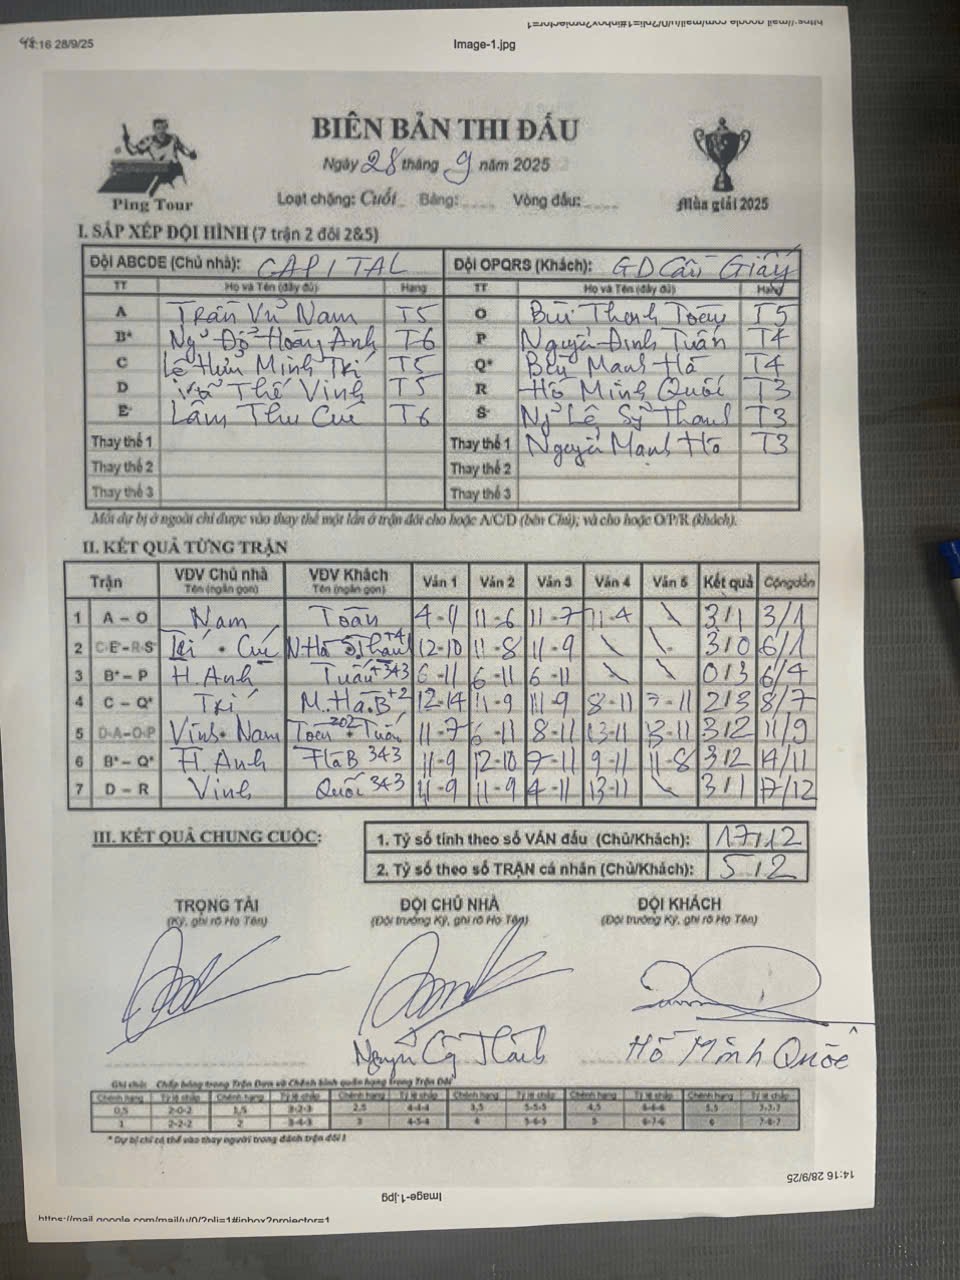 https://mail.google.com/mail/u/0/?pli=1#inbox?projector=1
14:16 28/9/25 Image-1.jpg
BIÊN BẢN THI ĐẤU
Ngày 28 tháng 9 năm 2025
Loạt chặng: Cuối Bảng: Vòng đấu:
Ping Tour Mùa giải 2025
I. SẮP XẾP ĐỘI HÌNH (7 trận 2 đôi 2&5)
Đội ABCDE (Chủ nhà): CAPITAL Đội OPQRS (Khách): GD Cầu Giấy
TT Họ và Tên (đầy đủ) Hạng TT Họ và Tên (đầy đủ) Hạng
A Trần Vũ Nam T5 O Bùi Thanh Toàn T5
B* Ng~ Đỗ Hoàng Anh T6 P Nguyễn Đình Tuấn T4
C Lê Hữu Minh Trí T5 Q* Bùi Mạnh Hà T4
D Thế Vinh T5 R Hồ Minh Quốc T3
E Lâm Thu Cúc T6 S Ng~ Lê Sỹ Thanh T3
Thay thế 1 Thay thế 1 Nguyễn Mạnh Hà T3
Thay thế 2 Thay thế 2
Thay thế 3 Thay thế 3
Mỗi dự bị ở ngoài chỉ được vào thay thế một lần ở trận đôi cho hoặc A/C/D (bên Chủ); và cho hoặc O/P/R (khách).
II. KẾT QUẢ TỪNG TRẬN
Trận VĐV Chủ nhà VĐV Khách Ván 1 Ván 2 Ván 3 Ván 4 Ván 5 Kết quả Cộng dồn
Tên (ngắn gọn) Tên (ngắn gọn)
1 A – O Nam Toàn 4-11 11-6 11-7 11-4 \ 3/1 3/1
2 C-E-R-S Trí + Cúc N.Hà S.Thanh +4 12-10 11-8 11-9 \ \ 3/0 6/1
3 B* – P H.Anh Tuấn +343 6-11 6-11 6-11 \ \ 0/3 6/4
4 C – Q* Trí M.Hà.B +2 12-14 11-9 11-9 8-11 7-11 2/3 8/7
5 D-A-O-P Vinh + Nam Toàn 202 + Tuấn 11-7 6-11 8-11 13-11 13-11 3/2 11/9
6 B* – Q* H.Anh Hà B 343 11-9 12-10 7-11 9-11 11-8 3/2 14/11
7 D – R Vinh Quốc 343 11-9 11-9 4-11 13-11 \ 3/1 17/12
III. KẾT QUẢ CHUNG CUỘC: 1. Tỷ số tính theo số VÁN đấu (Chủ/Khách): 17/12
2. Tỷ số theo số TRẬN cá nhân (Chủ/Khách): 5/2
TRỌNG TÀI ĐỘI CHỦ NHÀ ĐỘI KHÁCH
(Ký, ghi rõ Họ Tên) (Đội trưởng Ký, ghi rõ Họ Tên) (Đội trưởng Ký, ghi rõ Họ Tên)
Hồ Minh Quốc
Ghi chú: Chấp bóng trong Trận Đơn và Chênh bình quân hạng trong Trận Đôi
Chênh hạng Tỷ lệ chấp Chênh hạng Tỷ lệ chấp Chênh hạng Tỷ lệ chấp Chênh hạng Tỷ lệ chấp Chênh hạng Tỷ lệ chấp Chênh hạng Tỷ lệ chấp
0,5 2-0-2 1,5 3-2-3 2,5 4-4-4 3,5 5-5-5 4,5 6-6-6 5,5 7-7-7
1 2-2-2 2 3-4-3 3 4-5-4 4 5-6-5 5 6-7-6 6 7-8-7
* Dự bị chỉ có thể vào thay người trong đánh trận đôi !
14:16 28/9/25
Image-1.jpg
https://mail.google.com/mail/u/0/?pli=1#inbox?projector=1